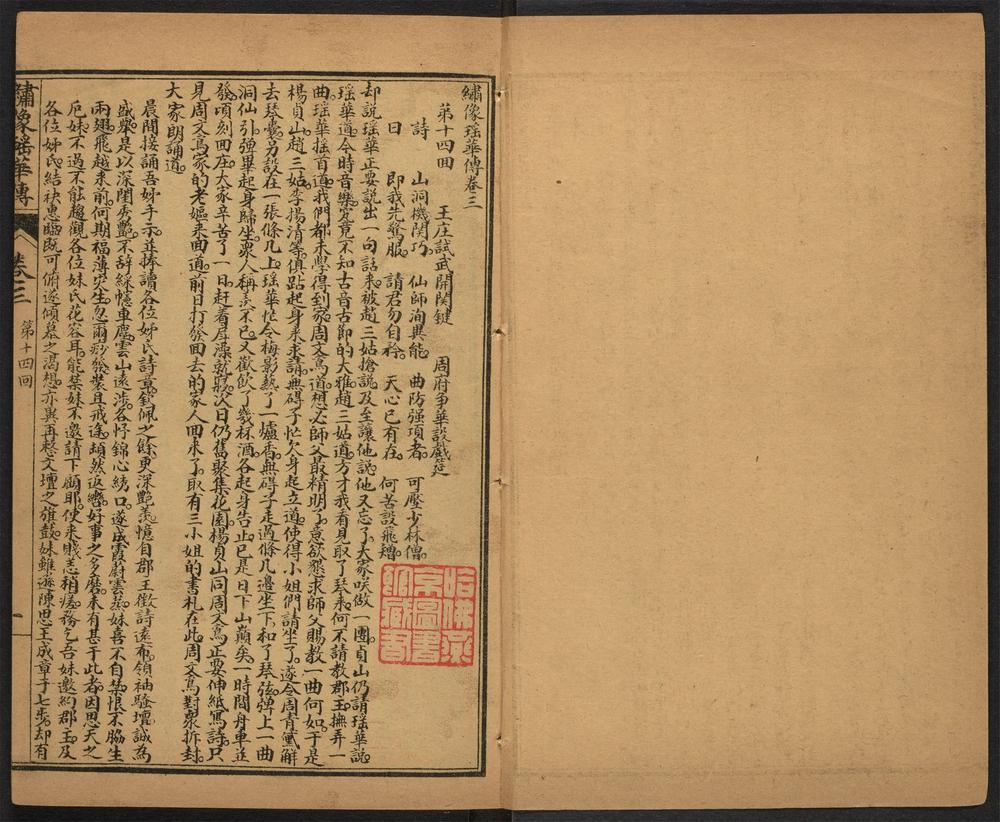 繡像瑤華傳卷三
第十四回　王庄試武開關鍵　周府爭華設戲筵
詩　山洞機関巧　仙師洵異能　曲防强項者　可壓少林僧
曰　即我先驚服　請君勿自矜　天心已有在　何苦設飛矰
却説瑶華正要説出一句話来被趙三姑搶説及至讓他説他又忘了大家咲做一團貞山仍請瑶華説
瑶華道今時音樂究竟不知古音古節的大雅趙三姑道方才我看見取了琴来何不請教郡主撫弄一
曲瑶華揺首道我們都未學得到家周文鳥道想必師父最精明了意欲懇求師父賜教一曲何如于是
楊貞山趙三姑李揚清等俱跕起身来求請無碍子忙欠身起立道使得小姐們請坐了遂令周青黛解
去琴囊另設在一張條几上瑶華忙令梅影熱了一爐香無碍子走過條几邊坐下和了琴弦弹上一曲
洞仙引弹畢起身歸坐衆人稱羨不已又歡飲了幾杯酒各起身告止已是日下山巔矣一時間舟車並
發頃刻囬庄大家辛苦了一日赶着昼澡就寢次日仍舊聚集花園楊貞山同周文鳥正要伸紙寫詩只
見周文鳥家的老嫗来囬道前日打發囬去的家人囬来了取有三小姐的書札在此周文鳥對衆拆封
大家朗誦道
晨間接誦吾姊手示並捧讀各位姊氏詩章欽佩之餘更深艷羨憶自郡王徵詩遠布領袖騷壇誠為
盛舉是以深閨秀艷不辞綵幰車塵雲山遠渉各抒錦心綉口遂成霞蔚雲蒸妹喜不自禁恨不脇生
兩翅飛越来前何期福薄灾生忽爾痧發裝且戒途頓然返轡好事之多磨未有甚于此者因思天之
厄妹不過不能趨覲各位妹氏花容耳能禁妹不邀請下顧耶使来賤恙稍痊務乞吾妹邀約郡主及
各位姊氏結袂惠臨既可俯遂傾慕之渴想亦與再整文壇之旗鼓妹雖遜陳思王成章于七步却有
繡像瑤華傳
卷三
第十四回
一